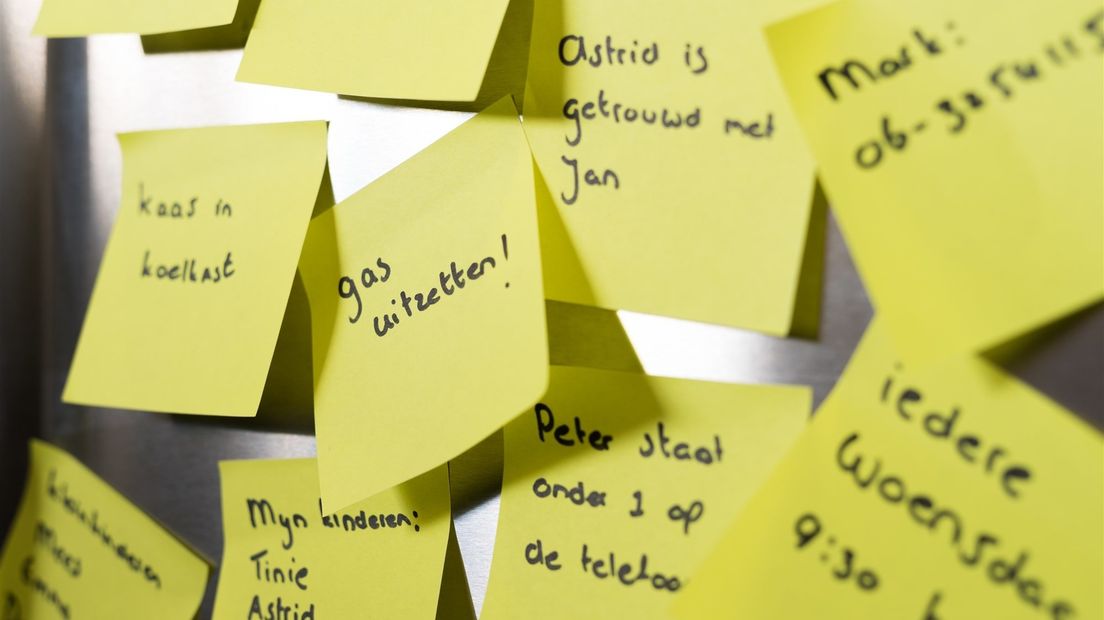 Astrid is
getrouwd met
Jan
Mark:
06-3254115
kaas in
koelkast
gas
uitzetten!
Peter staat
onder 1 op
de telefoo
iedere
Woensda
9:30
Mijn kinderen:
Tinie
Astrid
kleinkinderen